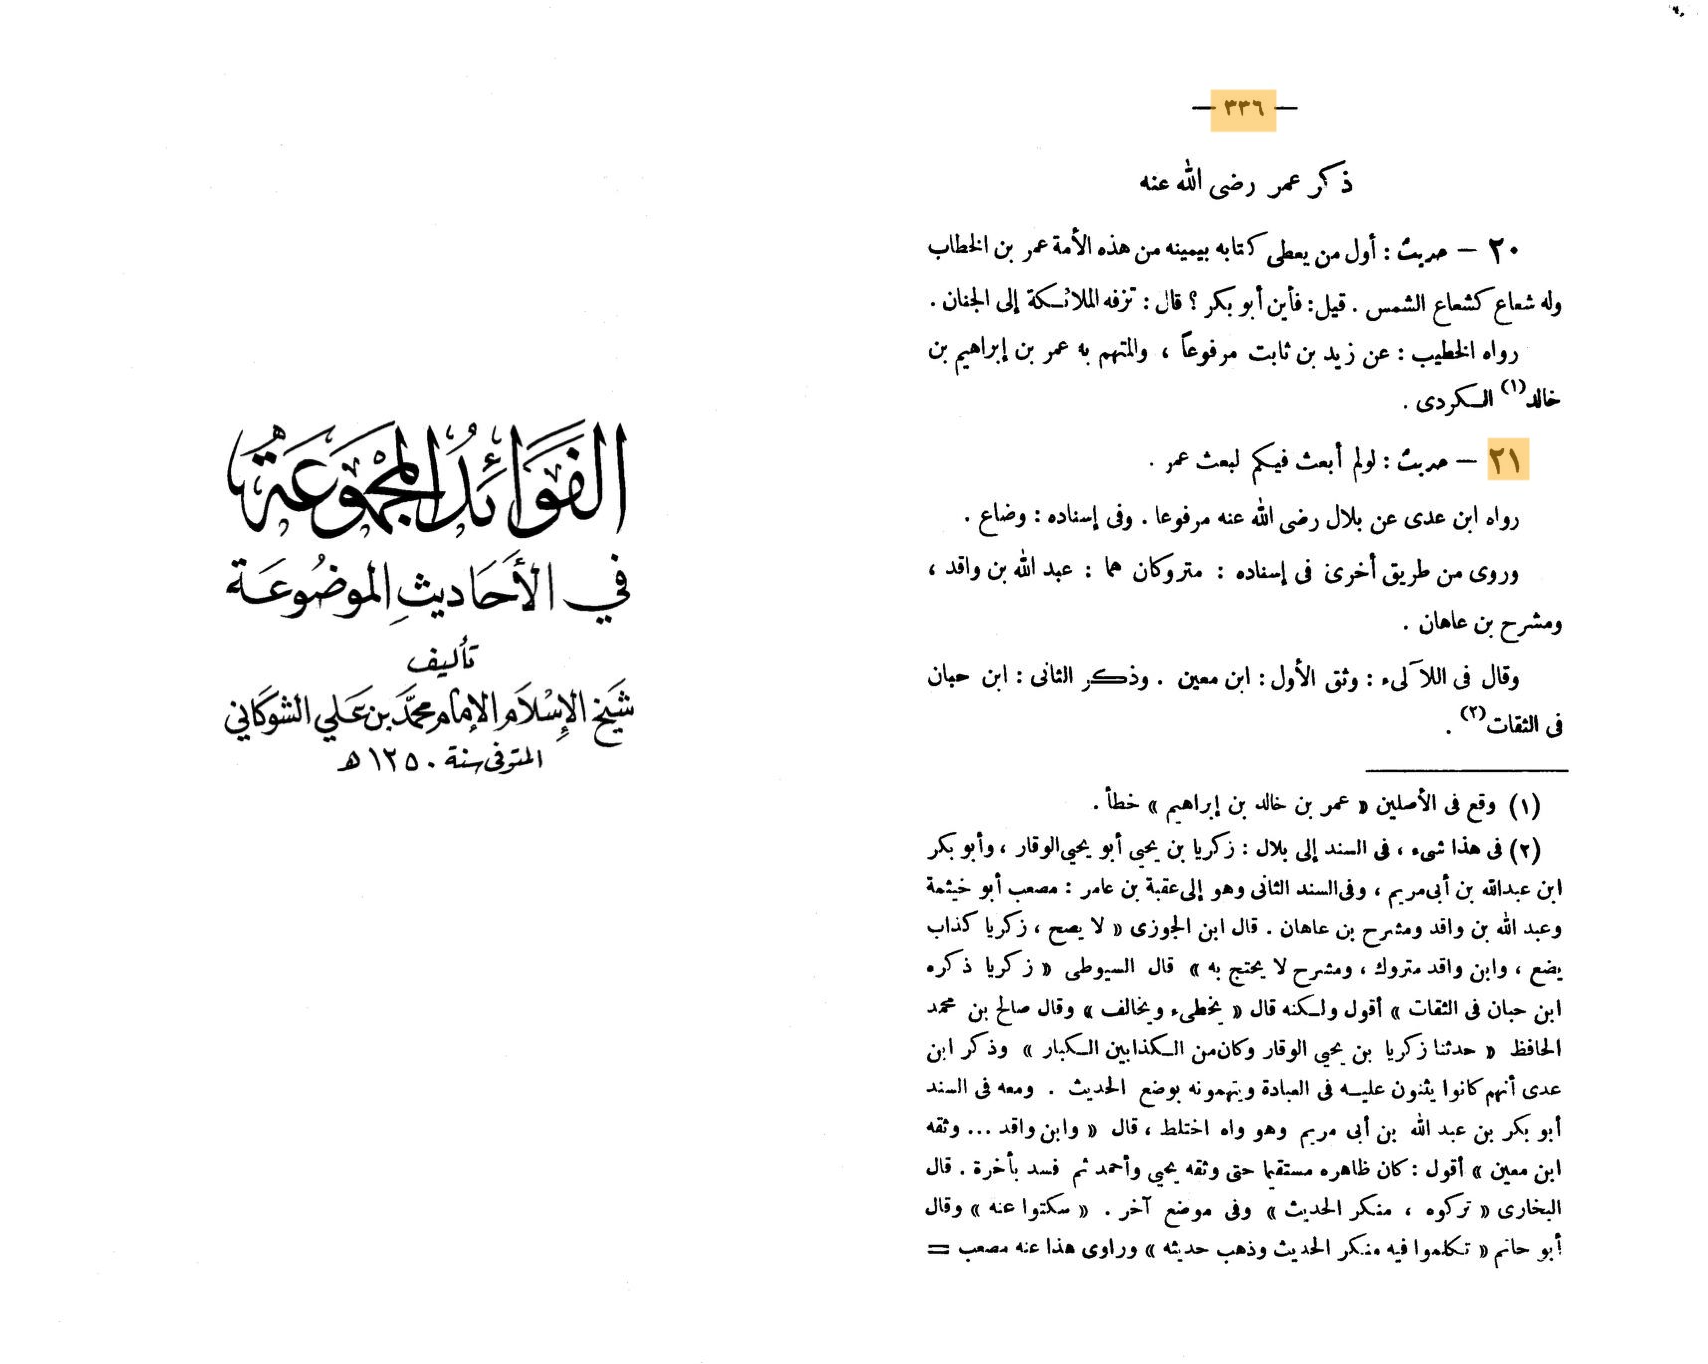 — ٣٣٦ —
ذكر عمر رضى الله عنه
٢٠ — حديث : أول من يعطى كتابه بيمينه من هذه الأمة عمر بن الخطاب
وله شعاع كشعاع الشمس . قيل : فأين أبو بكر ؟ قال : تزفه الملائكة إلى الجنان .
رواه الخطيب : عن زيد بن ثابت مرفوعاً ، والمتهم به عمر بن إبراهيم بن
خالد (١) الكردى .
٢١ — حديث : لولم أبعث فيكم لبعث عمر .
رواه ابن عدى عن بلال رضى الله عنه مرفوعا . وفى إسناده : وضاع .
وروى من طريق أخرى فى إسناده : متروكان هما : عبد الله بن واقد ،
ومشرح بن عاهان .
وقال فى اللآلىء : وثق الأول : ابن معين . وذكر الثانى : ابن حبان
فى الثقات (٢) .
(١) وقع فى الأصلين « عمر بن خالد بن إبراهيم » خطأ .
(٢) فى هذا شىء ، فى السند إلى بلال : زكريا بن يحيى أبو يحيى الوقار ، وأبو بكر
ابن عبدالله بن أبى مريم ، وفى السند الثانى وهو إلى عقبة بن عامر : مصعب أبو خيثمة
وعبد الله بن واقد ومشرح بن عاهان . قال ابن الجوزى « لا يصح ، زكريا كذاب
يضع ، وابن واقد متروك ، ومشرح لا يحتج به » قال السيوطى « زكريا ذكره
ابن حبان فى الثقات » أقول ولكنه قال « يخطىء ويخالف » وقال صالح بن محمد
الحافظ « حدثنا زكريا بن يحيى الوقار وكان من الكذابين الكبار » وذكر ابن
عدى أنهم كانوا يثنون عليه فى العبادة ويتهمونه بوضع الحديث . ومعه فى السند
أبو بكر بن عبد الله بن أبى مريم وهو واه اختلط ، قال « وابن واقد ... وثقه
ابن معين » أقول : كان ظاهره مستقيما حتى وثقه يحيى وأحمد ثم فسد بأخرة . قال
البخارى « تركوه ، منكر الحديث » وفى موضع آخر . « سكتوا عنه » وقال
أبو حاتم « تكلموا فيه منكر الحديث وذهب حديثه » وراوى هذا عنه مصعب =
الفَوَائِدُ المَجْمُوعَةُ
في الأَحَاديثِ الموضُوعَة
تأليف
شَيخ الإِسْلَام الإمَام محمَّد بن عَلي الشوكَاني
المتوفى سنة ١٢٥٠ هـ